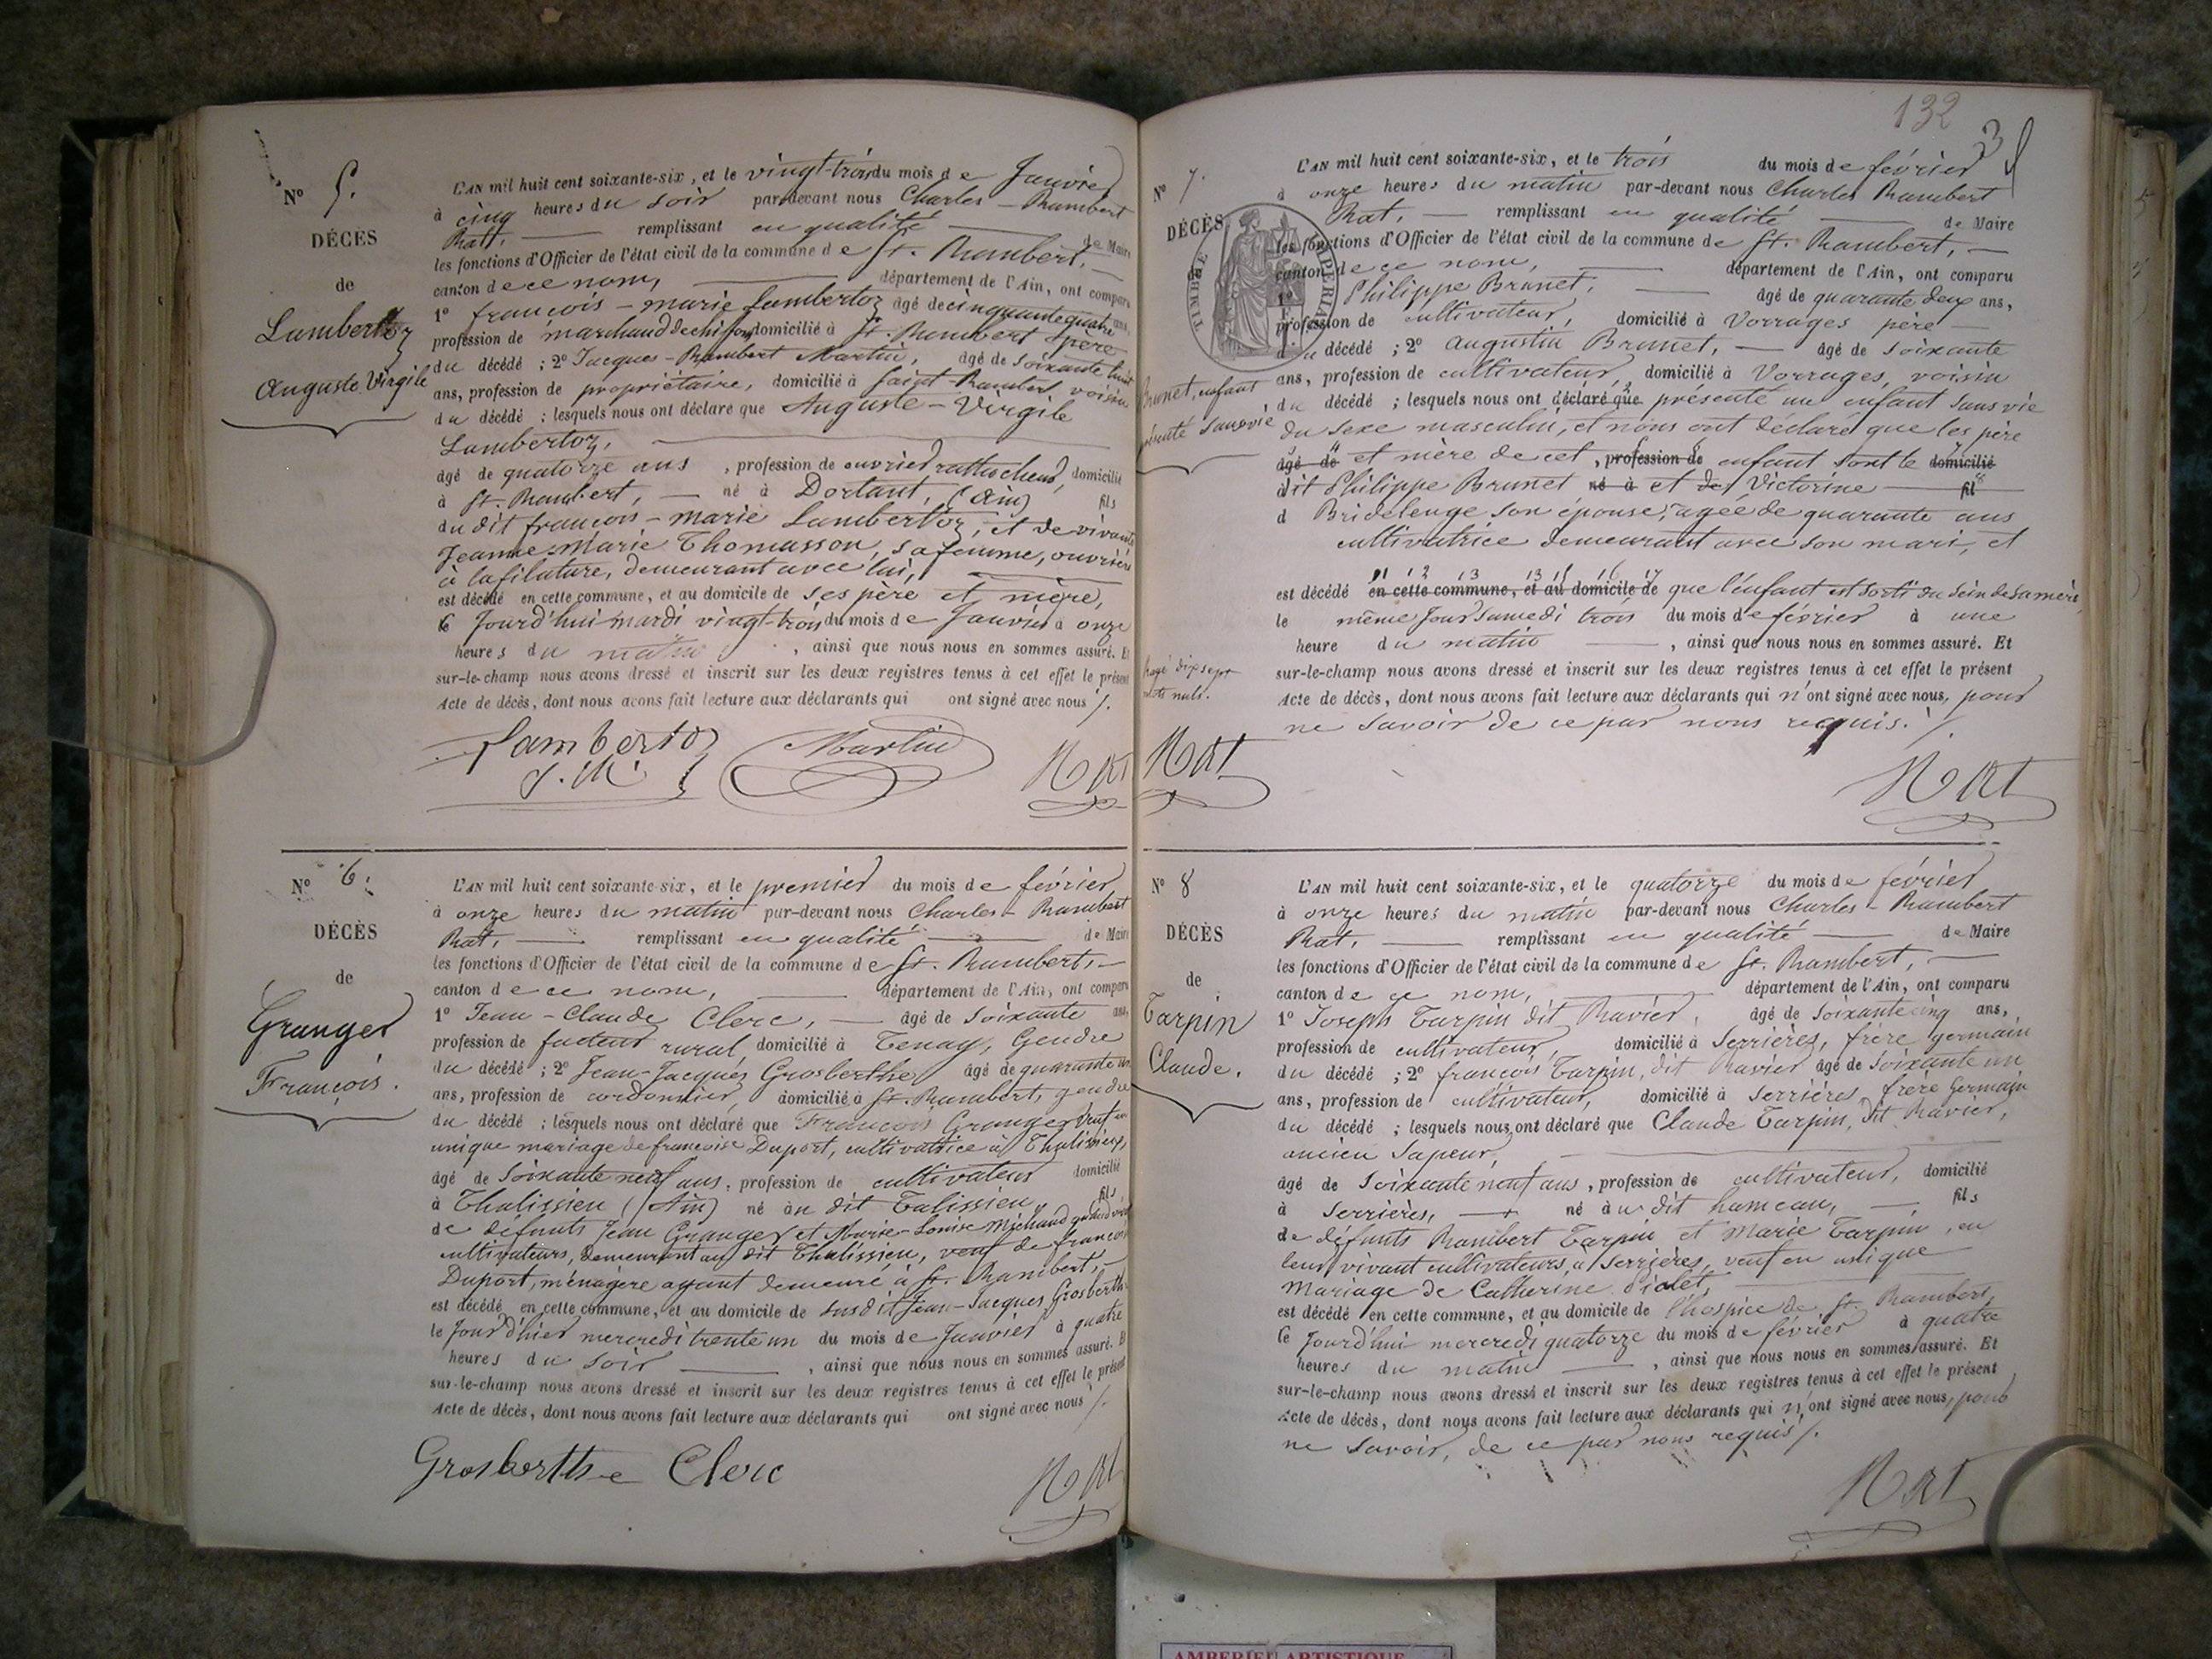 Nº 5.
DÉCÈS
de
Lambertoz
Auguste Virgile
L'AN mil huit cent soixante-six, et le vingt-trois du mois de Janvier
à cinq heures du soir par-devant nous Charles-Rambert
Rat, remplissant en qualité de Maire
les fonctions d'Officier de l'état civil de la commune de St. Rambert,
canton de ce nom, département de l'Ain, ont comparu
1º françois-marie Lambertoz âgé de cinquante quatre ans,
profession de marchand de chiffons domicilié à St. Rambert père
du décédé ; 2º Jacques-Rambert Martin, âgé de soixante huit
ans, profession de propriétaire, domicilié à Saint-Rambert voisin
du décédé ; lesquels nous ont déclaré que Auguste-Virgile
Lambertoz,
âgé de quatorze ans, profession de ouvrier rattacheur, domicilié
à St. Rambert, né à Dortant, (Ain) fils
du dit françois-marie Lambertoz, et de vivante
Jeanne-Marie Thomasson, sa femme, ouvrière
à la filature, demeurant avec lui,
est décédé en cette commune, et au domicile de ses père et mère,
ce Jourd'hui mardi vingt-trois du mois de Janvier à onze
heures du matin, ainsi que nous nous en sommes assuré. Et
sur-le-champ nous avons dressé et inscrit sur les deux registres tenus à cet effet le présent
Acte de décès, dont nous avons fait lecture aux déclarants qui ont signé avec nous /.
Lambertoz Martin Rat
f. M.
Nº 6.
DÉCÈS
de
Granger
François.
L'AN mil huit cent soixante-six, et le premier du mois de février
à onze heures du matin par-devant nous Charles-Rambert
Rat, remplissant en qualité de Maire
les fonctions d'Officier de l'état civil de la commune de St. Rambert,
canton de ce nom, département de l'Ain, ont comparu
1º Jean-Claude Clerc, âgé de Soixante ans,
profession de facteur rural, domicilié à Tenay, Gendre
du décédé ; 2º Jean-Jacques Grosberthe âgé de quarante un
ans, profession de cordonnier, domicilié à St. Rambert, gendre
du décédé ; lesquels nous ont déclaré que François Granger Veuf en
unique mariage de françoise Duport, cultivatrice à Thalissieu,
âgé de Soixante neuf ans, profession de cultivateur domicilié
à Thalissieu (Ain) né au dit Talissieu, fils
de défunts Jean Granger et Marie-Louise Michaud
cultivateurs, demeurant au dit Thalissieu, veuf de françoise
Duport, ménagère ayant demeuré à St. Rambert,
est décédé en cette commune, et au domicile de susdit Jean-Jacques Grosberthe
le Jour d'hier mercredi trente un du mois de Janvier à quatre
heures du soir, ainsi que nous nous en sommes assuré. Et
sur-le-champ nous avons dressé et inscrit sur les deux registres tenus à cet effet le présent
Acte de décès, dont nous avons fait lecture aux déclarants qui ont signé avec nous /.
Grosberthe Clerc Rat
132
3
Nº 7.
DÉCÈS
de
TIMBRE IMPERIAL
Brunet, enfant
présenté sans vie
L'AN mil huit cent soixante-six, et le trois du mois de février
à onze heures du matin par-devant nous Charles Rambert
Rat, remplissant en qualité de Maire
les fonctions d'Officier de l'état civil de la commune de St. Rambert,
canton de ce nom, département de l'Ain, ont comparu
1º Philippe Brunet, âgé de quarante deux ans,
profession de cultivateur, domicilié à Vorrages père
du décédé ; 2º Augustin Brunet, âgé de soixante
ans, profession de cultivateur, domicilié à Vorrages, voisin
du décédé ; lesquels nous ont déclaré que présenté un enfant sans vie
du sexe masculin, et nous ont déclaré que les père
âgé de et mère de cet, profession de enfant sont le domicilié
dit Philippe Brunet né à et de Victorine fil
d Bridelenge son épouse, âgée de quarante ans
cultivatrice demeurant avec son mari, et
est décédé en cette commune, et au domicile de que l'enfant est sorti du sein de sa mère,
le même jour samedi trois du mois de février à une
heure du matin, ainsi que nous nous en sommes assuré. Et
sur-le-champ nous avons dressé et inscrit sur les deux registres tenus à cet effet le présent
Acte de décès, dont nous avons fait lecture aux déclarants qui n'ont signé avec nous, pour
ne savoir de ce par nous requis. /.
Rayé dix sept
mots nuls.
Rat
Rat
Nº 8
DÉCÈS
de
Tarpin
Claude.
L'AN mil huit cent soixante-six, et le quatorze du mois de février
à onze heures du matin par-devant nous Charles-Rambert
Rat, remplissant en qualité de Maire
les fonctions d'Officier de l'état civil de la commune de St. Rambert,
canton de ce nom, département de l'Ain, ont comparu
1º Joseph Tarpin dit Ravier, âgé de soixante cinq ans,
profession de cultivateur, domicilié à Serrières, frère germain
du décédé ; 2º françois Tarpin, dit Ravier âgé de soixante un
ans, profession de cultivateur, domicilié à Serrières frère Germain
du décédé ; lesquels nous ont déclaré que Claude Tarpin, dit Ravier,
ancien Sapeur,
âgé de Soixante neuf ans, profession de cultivateur, domicilié
à Serrières, né au dit hameau, fils
de défunts Rambert Tarpin et Marie Tarpin, en
leur vivant cultivateurs, à Serrières, veuf en unique
Mariage de Catherine
est décédé en cette commune, et au domicile de l'hospice de St. Rambert,
ce Jourd'hui mercredi quatorze du mois de février à quatre
heures du matin, ainsi que nous nous en sommes assuré. Et
sur-le-champ nous avons dressé et inscrit sur les deux registres tenus à cet effet le présent
Acte de décès, dont nous avons fait lecture aux déclarants qui n'ont signé avec nous, pour
ne savoir, de ce par nous requis /.
Rat
AMBERIEU ARTISTIQUE